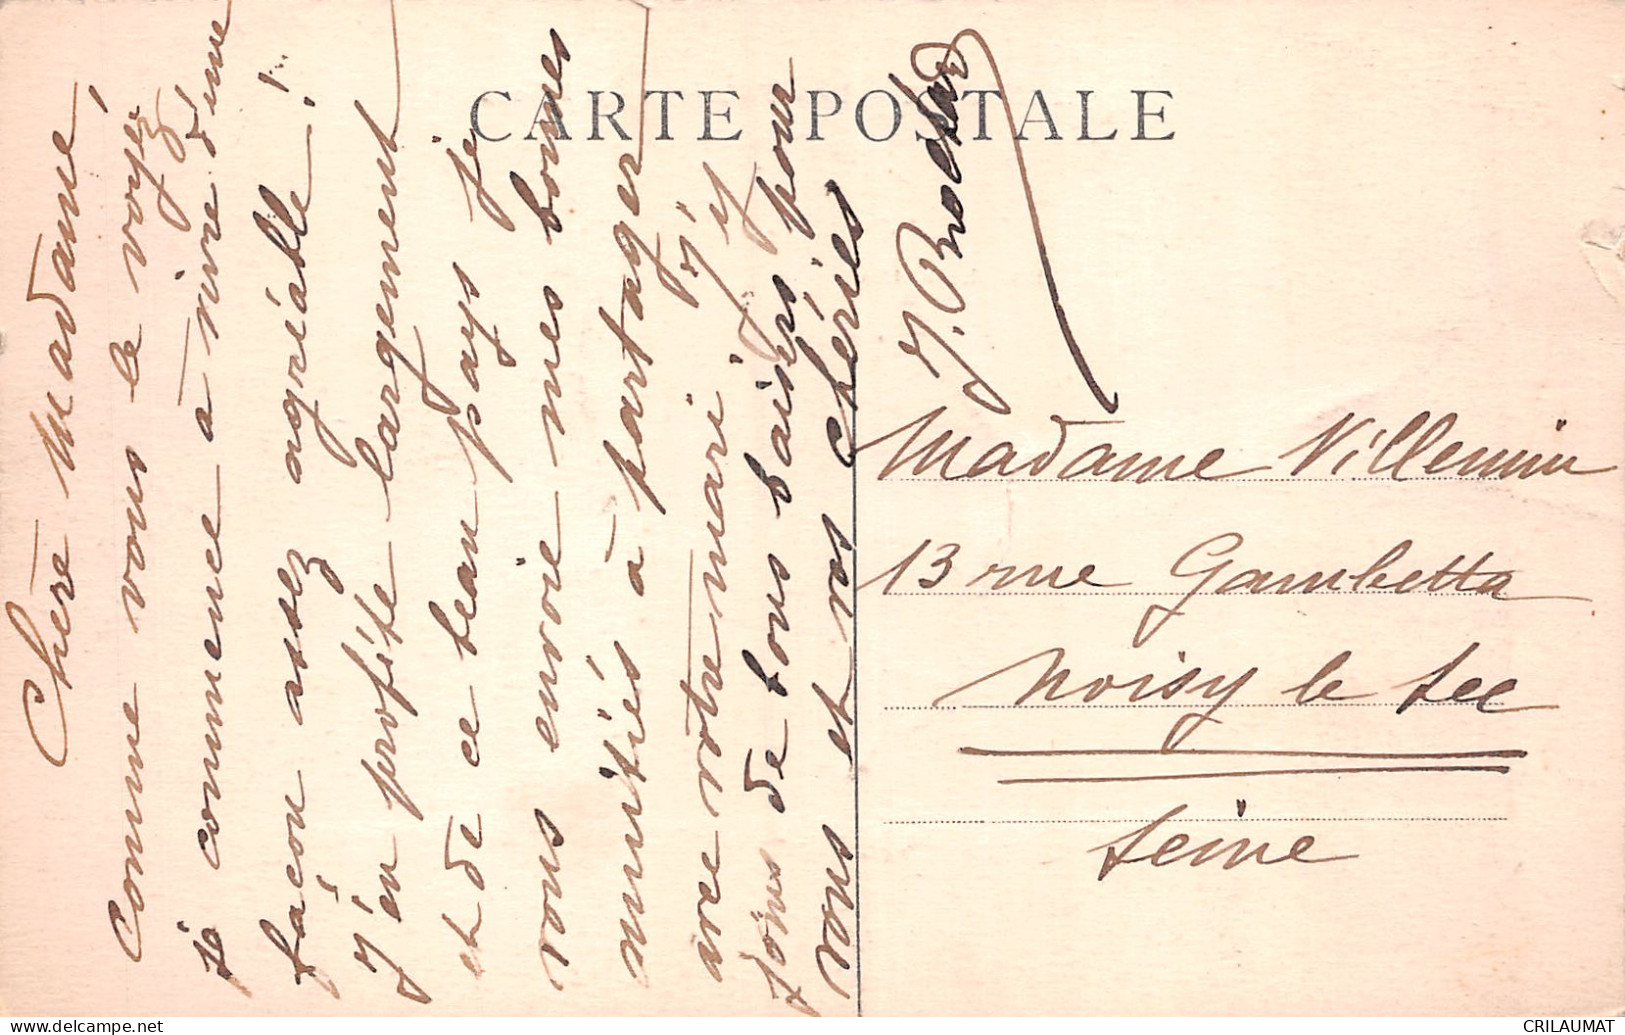 CARTE POSTALE
Chère Madame
Comme vous le voyez
je commence à vivre d'une
façon assez agréable !
J'en profite largement
et de ce beau pays je
vous envoie mes bonnes
amitiés à partager
avec votre mari. J'y
joins de bons baisers pour
vous et vos chéries
Madame Villemin
13 rue Gambetta
Noisy le Sec
Seine
www.delcampe.net
CRILAUMAT